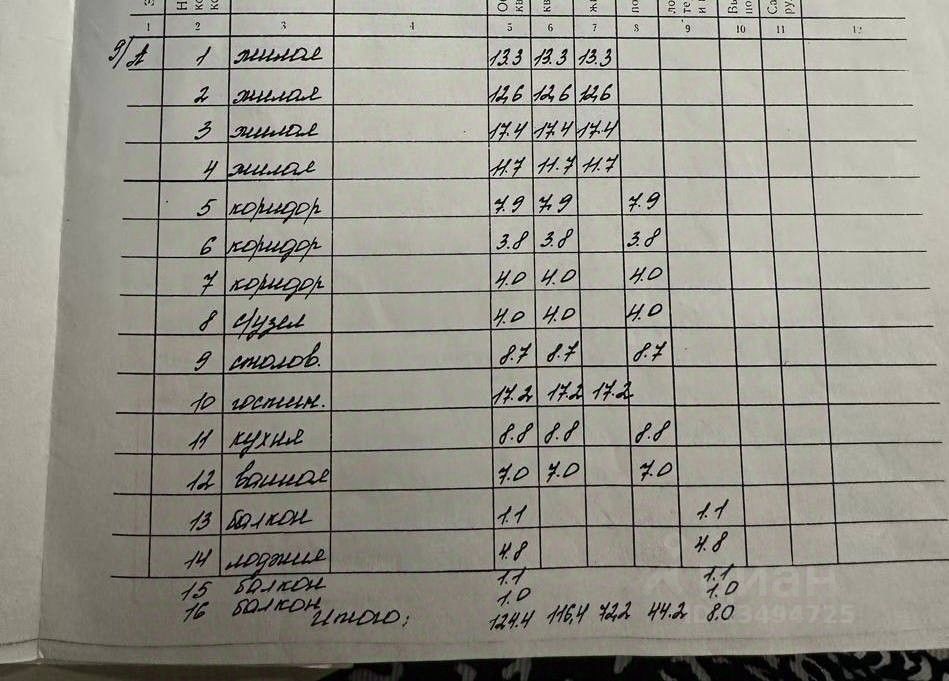 1 2 3 4 5 6 7 8 9 10 11 12
9/ А 1 жилая 13.3 13.3 13.3
2 жилая 12,6 12,6 12,6
3 жилая 17.4 17.4 17.4
4 жилая 11.7 11.7 11.7
5 коридор 7.9 7,9 7.9
6 коридор 3.8 3.8 3.8
7 коридор 4.0 4.0 4.0
8 с/узел 4.0 4.0 4.0
9 столов. 8.7 8.7 8.7
10 гостин. 17.2 17.2 17.2
11 кухня 8.8 8.8 8.8
12 ванная 7.0 7.0 7.0
13 балкон 1.1 1.1
14 лоджия 4.8 4.8
15 балкон 1.1 1.1
16 балкон 1.0 1.0
Итого: 124.4 116,4 72,2 44.2 8.0
циан